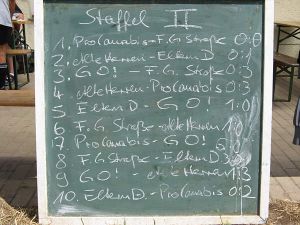 Staffel II
1. ProCanabis - F.G Straße 0:0
2. Alte Herren - Eltern D. 0:1
3. GO! - F.G. Straße 0:3
4. Alte Herren - ProCanabis 0:3
5. Eltern D. - GO! 1:0
6 F.G. Straße - Alte Herren 1:0
7. ProCanabis - GO!
8. F.G Straße - Eltern D
9 GO! - Alte Herren 1:3
10. Eltern D. - ProCanabis 0:2